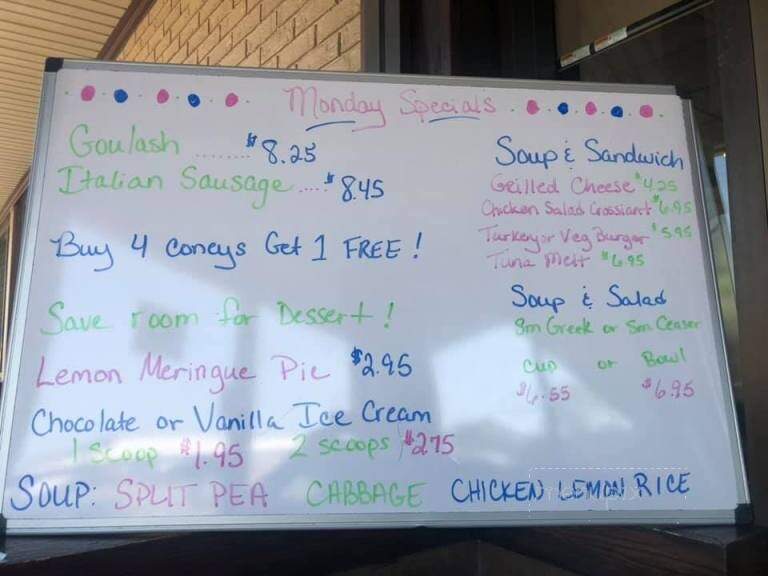 Monday Specials
Goulash ........ $8.25
Italian Sausage .... $8.45
Buy 4 Coneys Get 1 FREE!
Save room for Dessert!
Lemon Meringue Pie $2.95
Chocolate or Vanilla Ice Cream
1 Scoop $1.95 2 scoops $2.75
Soup & Sandwich
Grilled Cheese $4.25
Chicken Salad Crossiant $6.95
Turkey or Veg Burger $5.95
Tuna Melt $6.95
Soup & Salad
Sm Greek or Sm Ceaser
Cup or Bowl
$6.55 $6.95
SOUP: SPLIT PEA CABBAGE CHICKEN LEMON RICE